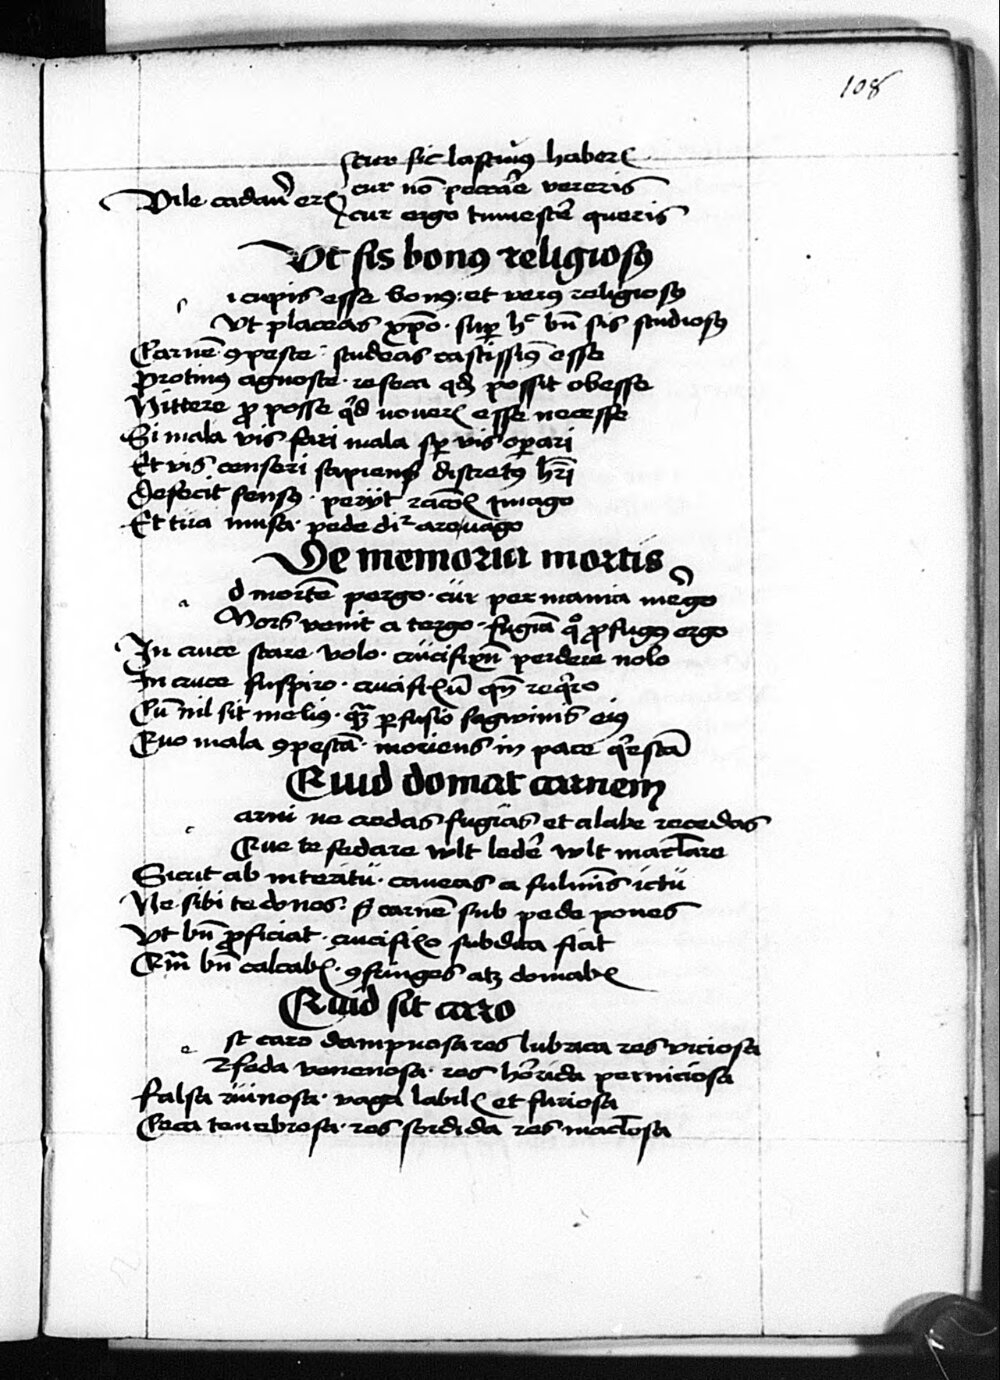 108
cur sic lasciuꝰ haberꝭ
Vile cadau̓ erꝭ cur nō peccar̄e vereris
cur ergo tumescer̄e queris
Vt sis bonꝰ religiosꝰ
s ı cupis esse bonꝰ: et verꝰ religiosꝰ
Vt placeas xp̄o · sup̱ hͨ bn̄ sis studiosꝰ
Carnē ꝯpesce · studeas castissimꝰ esse
Protinꝰ agnosce · reseca qd̄ possit obesse
Nittere ꝓ posse qd̄ nouerꝭ esse necesse
Si mala vis fari mala sꝑ vis oꝑari
Et vis censeri sapiens discretꝰ hr̄i
Defecit sensꝰ · perijt rac̄oꝭ ymago
Et tua musa · pede dirᷣ a vago
De memoria mortis
a d mortē pergo · cur per mania mer̄go
Mors venit a tergo · fugiā qͦ ꝓfugꝰ ergo
In cruce stare volo · crucifixū perdere nolo
In cruce suspiro · crucifixū qn̄ reqͥro
Cū nil sit meliꝰ · qᷓꝫ ꝑfusio sagwinis eiꝰ
Quo mala ꝯpescā · moriens in pace qͥescā
Quid domat carnem
c arni ne credas fugias et a labe recedas
Que te fedare wlt leder̄e wlt mactare
Sicut ab interitu · caueas a fulminis ictu
Ne sibi te dones · s̄ carnē sub pede pones
Vt bn̄ ꝓficiat · crucifixo subdita fiat
Qm̄ bn̄ calcabꝭ · ꝯfringes atqꝫ domabꝭ
Quid sit caro
e st caro dampnosa res lubrica res viciosa
Res feda venenosa · res hor̄rida perniciosa
Falsa ruinosa · vaga labilꝭ et furiosa
Ceca tenebrosa · res sordida res mactosa